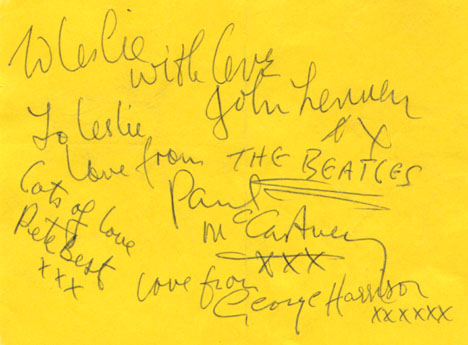 To Leslie
with love
John Lennon
X
To Leslie
love from THE BEATLES
Paul
McCartney
XXX
Lots of love
Pete Best
xxx
love from
George Harrison
xxxxxx